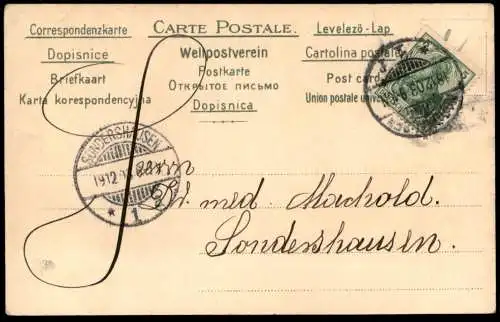 Correspondenzkarte CARTE POSTALE. Levelező-Lap
Dopisnice Weltpostverein Cartolina postale
Briefkaart Postkarte Post card
Karta korespondencyjna ОТКРЫТОЕ ПИСЬМО Union postale
Dopisnica
SONDERSHAUSEN
19.12
* 1
Herrn
Dr. med. Machold.
Sondershausen.